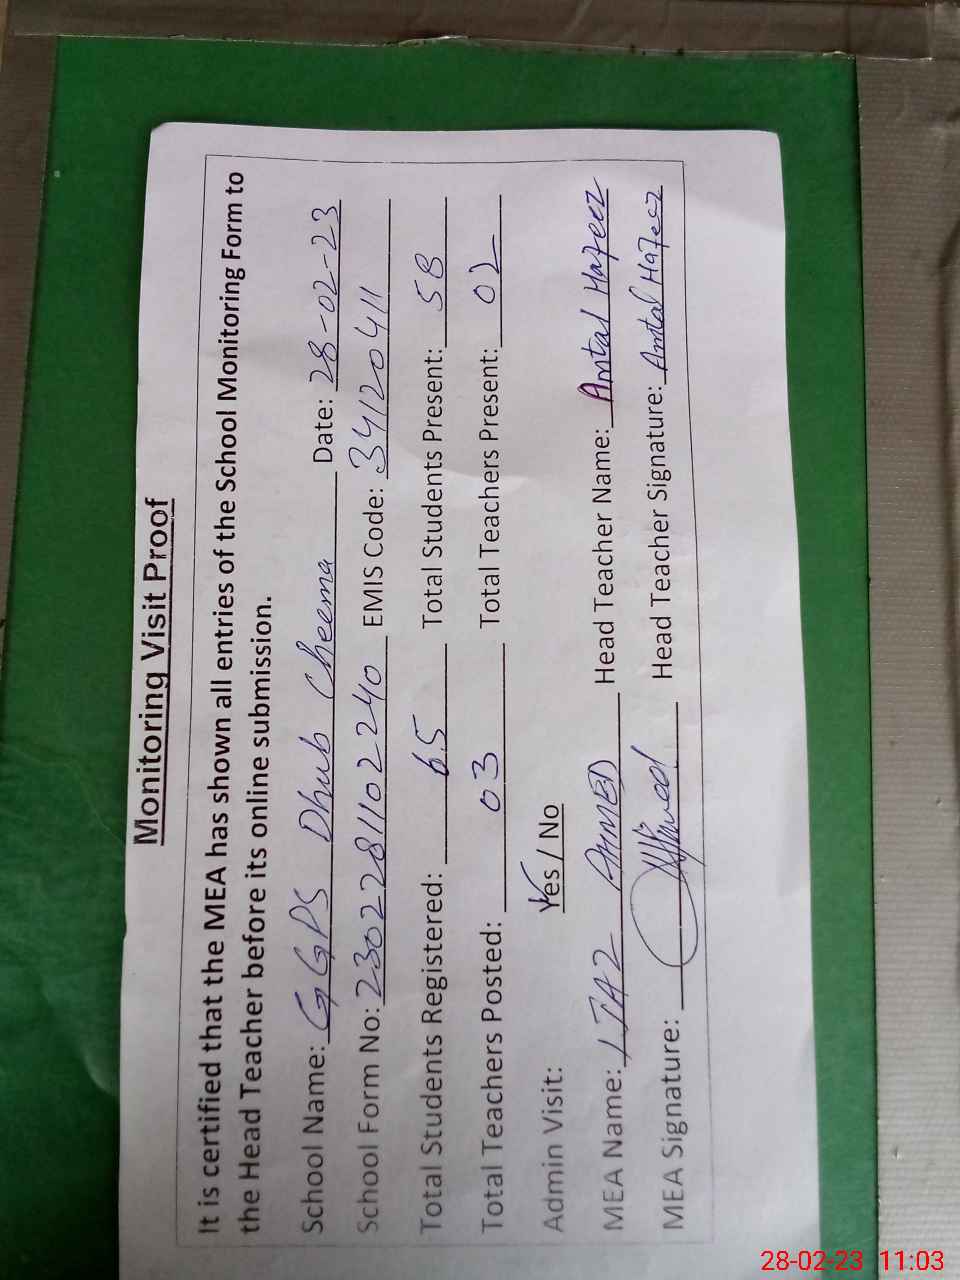 Monitoring Visit Proof
It is certified that the MEA has shown all entries of the School Monitoring Form to
the Head Teacher before its online submission.
School Name: GGPS Dhub Cheema Date: 28-02-23
School Form No: 230228110 2240 EMIS Code: 34120411
Total Students Registered: 65 Total Students Present: 58
Total Teachers Posted: 03 Total Teachers Present: 02
Admin Visit: Yes / No
MEA Name: IJAZ AHMED Head Teacher Name: Amtal Hafeez
MEA Signature: Head Teacher Signature: Amtal Hafeez
28-02-23 11:03